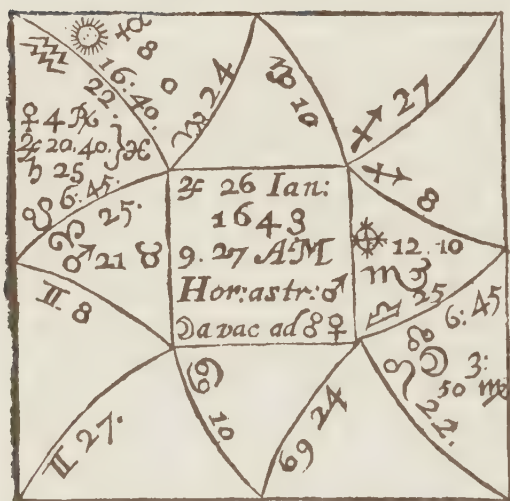 ♒ ☉ ☿
8 0
16:40.
22.
♀ 4 ℞
♃ 20.40. } ♓
♄ 25
☋ 6:45.
♈ 25.
♂ 21 ♉
♊ 8
♊ 27.
♑ 24
♑ 10
♐ 27
♐ 8
♃ 26 Ian:
1643
9.27 A:M
Hor:astr:♂
☽ a vac ad ☍ ♀
⊕ 12.10
♏
♎ 25
☊ 6:45
☽ 3:
50 ♍
♌ 22.
♋ 10
♋ 24